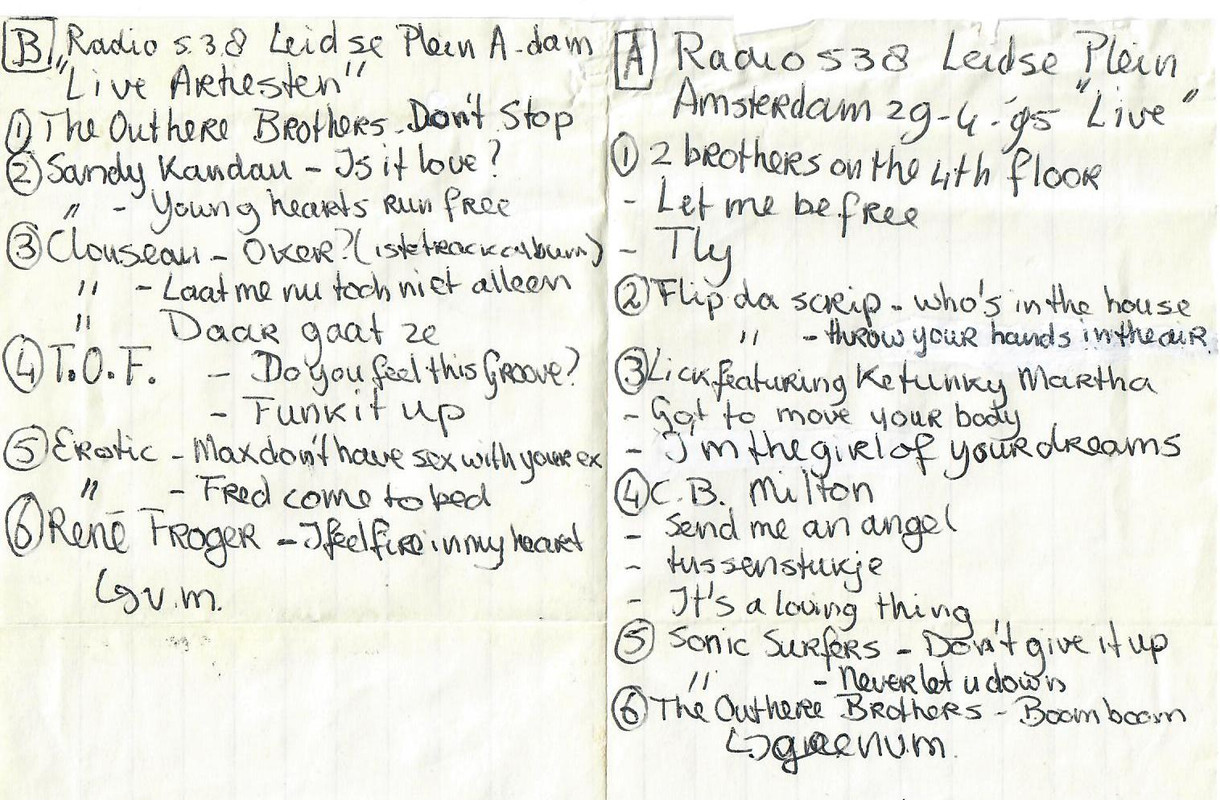 B Radio 538 Leidse Plein A-dam
"Live Artiesten"
① The Outhere Brothers - Don't Stop
② Sandy Kandau - Is it love?
" - Young hearts run free
③ Clouseau - Oker? (1ste track album)
" - Laat me nu toch niet alleen
" Daar gaat ze
④ T.O.F. - Do you feel this Groove?
- Funk it up
⑤ Erotic - Max don't have sex with your ex
" - Fred come to bed
⑥ René Froger - I feel fire in my heart
↳ v.m.
A Radio 538 Leidse Plein
Amsterdam 29-4-'95 "Live"
① 2 brothers on the 4th floor
- Let me be free
- Fly
② Flip da scrip - who's in the house
" - throw your hands in the air
③ Lick featuring Kefunky Martha
- Got to move your body
- I'm the girl of your dreams
④ C.B. Milton
- Send me an angel
- tussenstukje
- It's a loving thing
⑤ Sonic Surfers - Don't give it up
" - Never let u down
⑥ The Outhere Brothers - Boom boom
↳ geen v.m.